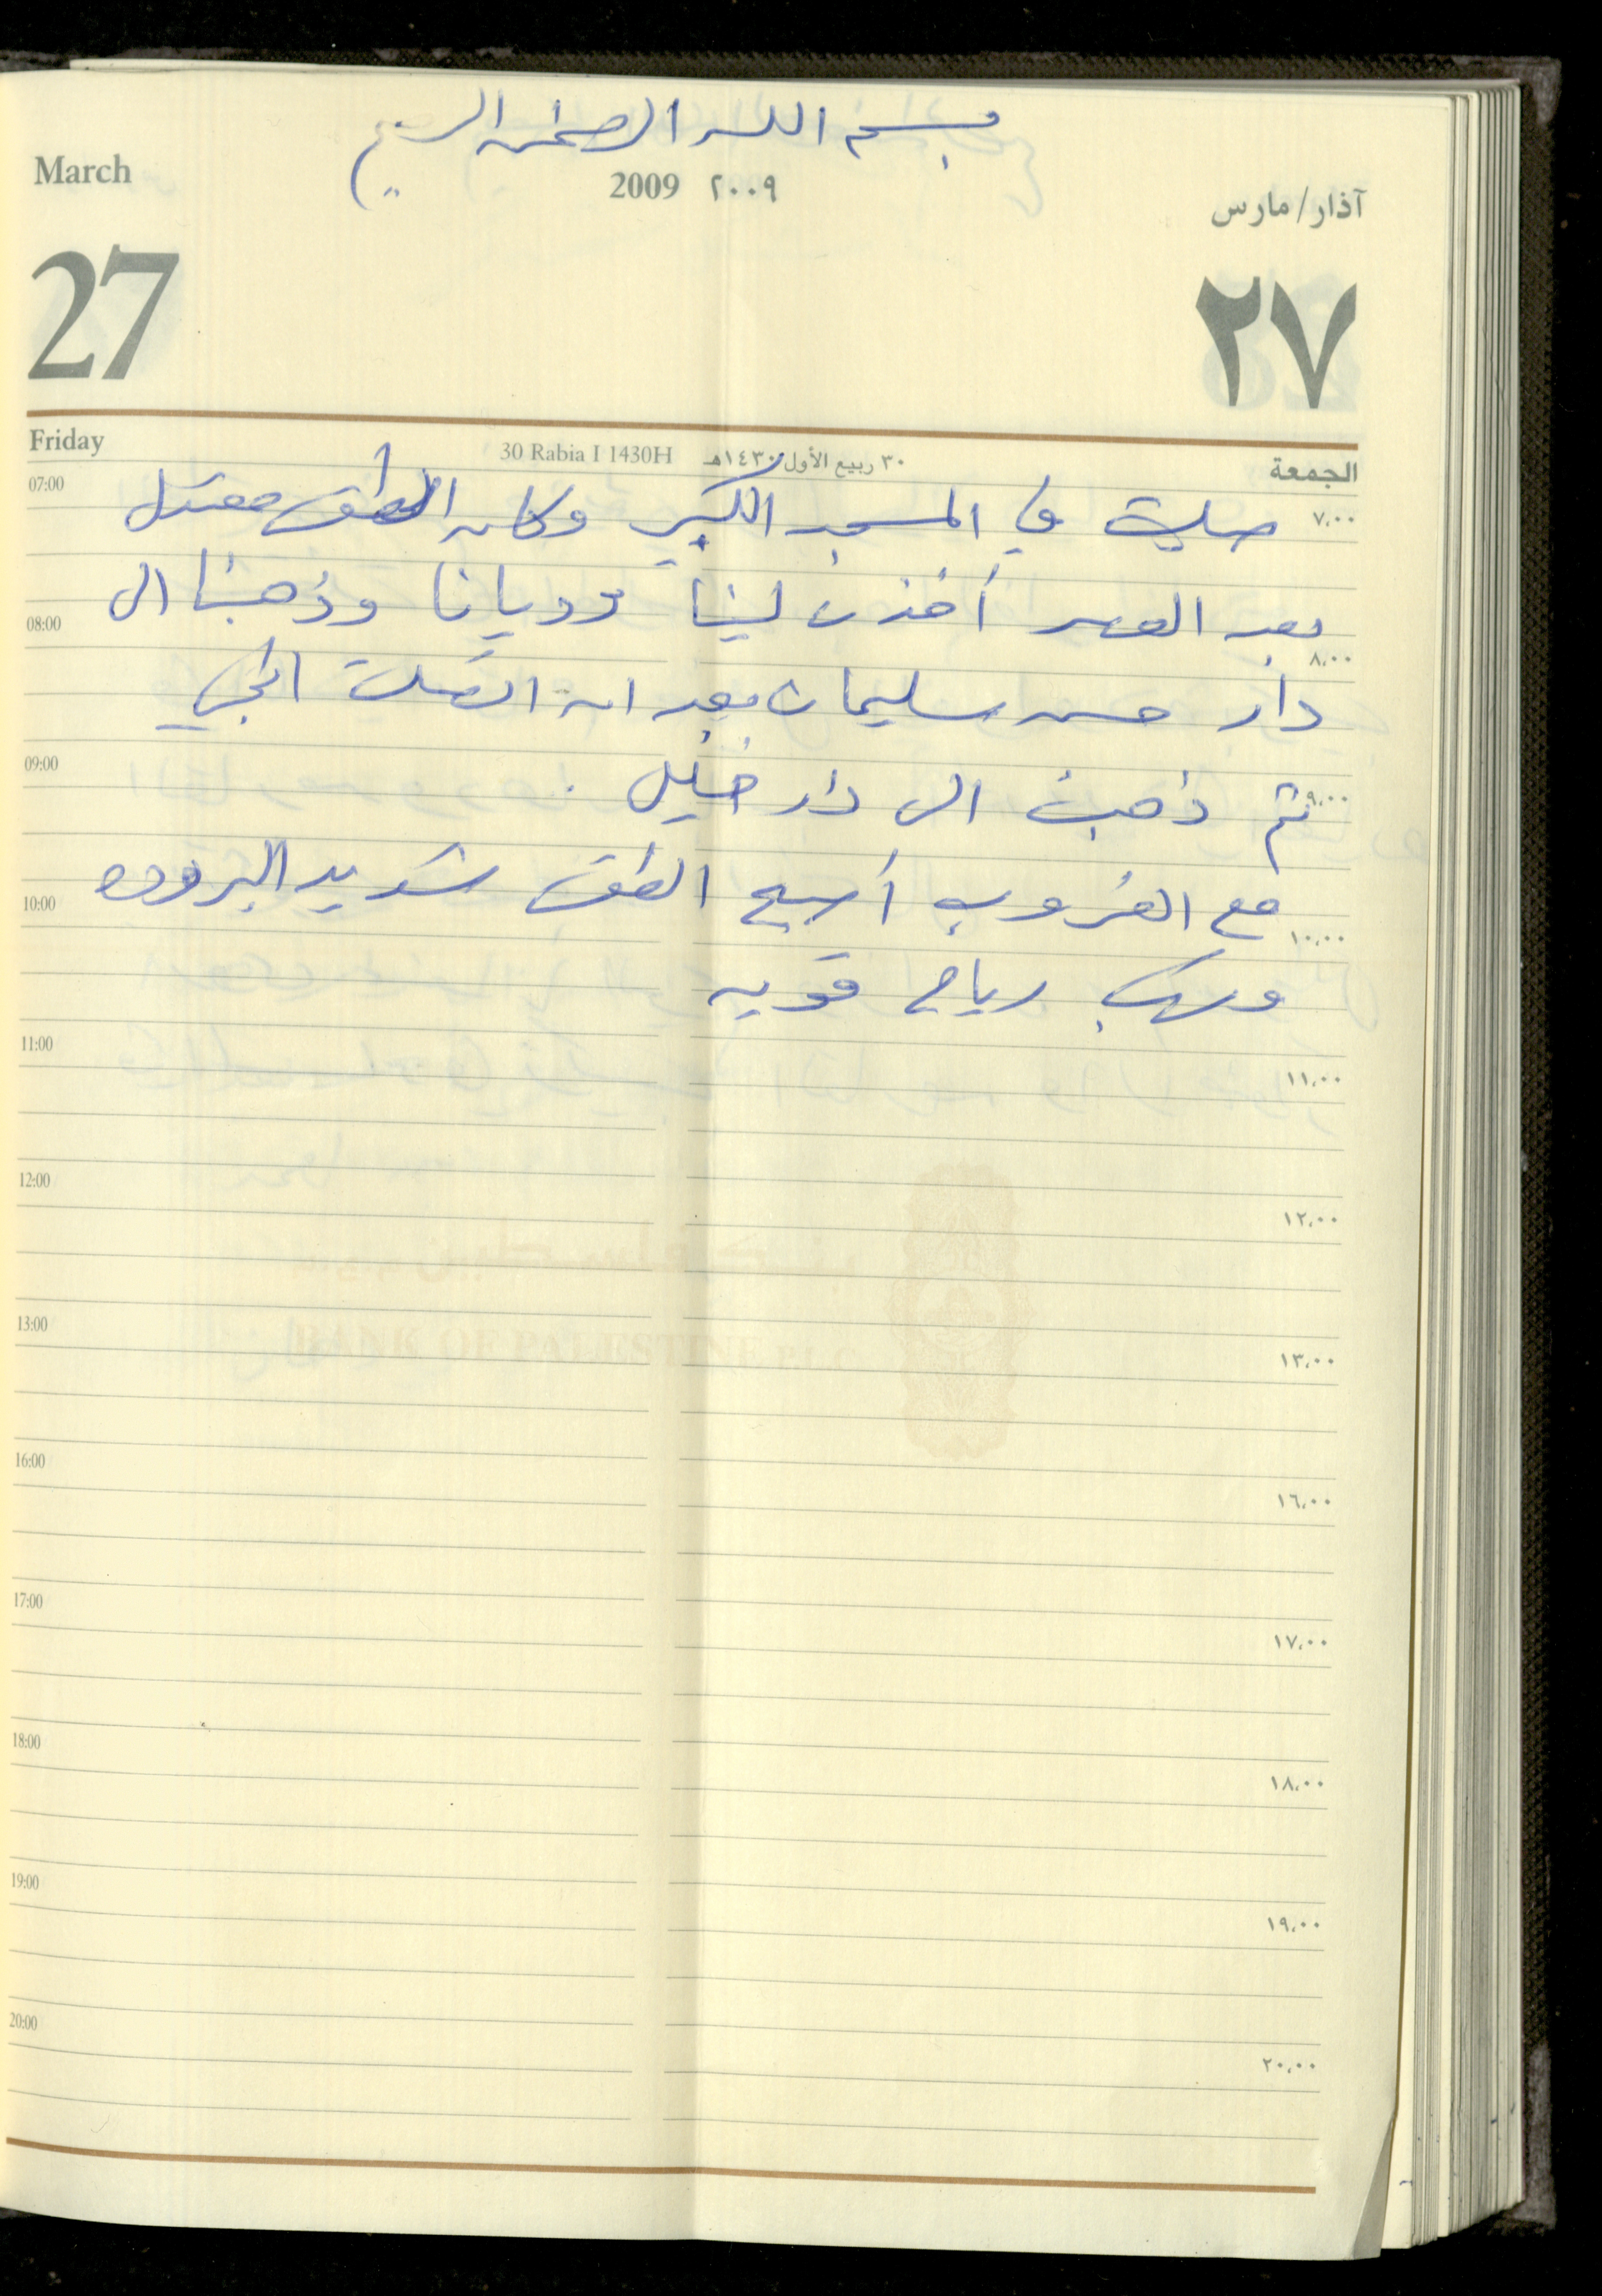 بسم الله الرحمن الرحيم
March
2009 ٢٠٠٩
آذار/مارس
27
٢٧
Friday
30 Rabia I 1430H ٣٠ ربيع الأول ١٤٣٠هـ
الجمعة
07:00 ٧،٠٠
صليت في المسجد الكبير وكان الطقس معتدل
بعد العصر أخذت لينا وديانا وذهبنا الى
08:00 ٨،٠٠
دار حسن سليمان بعد ان اتصلت
09:00 ٩،٠٠
ثم ذهبت الى دار خليل .
مع الغروب أصبح الطقس شديد البروده
10:00 ١٠،٠٠
وهبت رياح قويه
11:00 ١١،٠٠
12:00 ١٢،٠٠
13:00 ١٣،٠٠
BANK OF PALESTINE P.L.C
16:00 ١٦،٠٠
17:00 ١٧،٠٠
18:00 ١٨،٠٠
19:00 ١٩،٠٠
20:00 ٢٠،٠٠